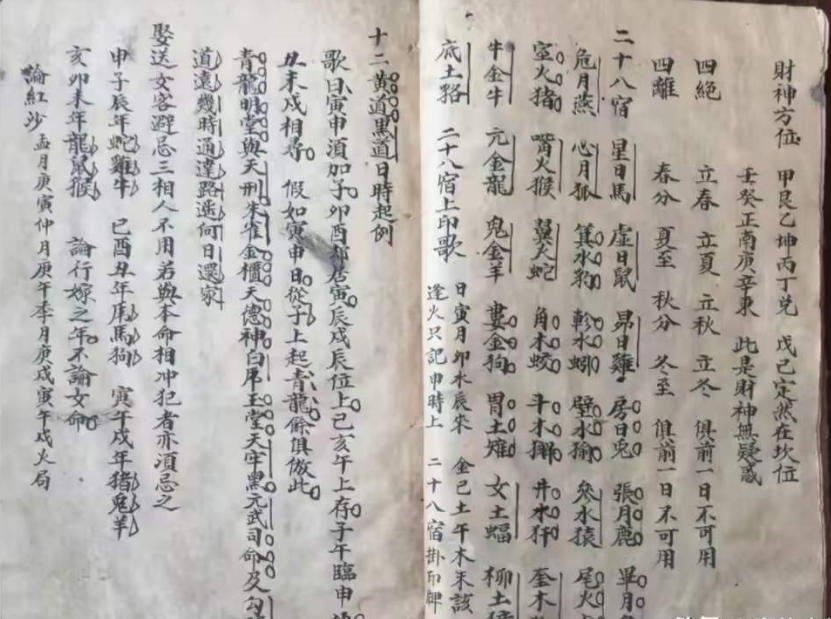 財神方位 甲艮乙坤丙丁兑 戊己定然在坎位
壬癸正南庚辛東 此是財神無疑惑
四絕 立春 立夏 立秋 立冬 俱前一日不可用
四離 春分 夏至 秋分 冬至 俱前一日不可用
二十八宿 星日馬 虛日鼠 昴日雞 房日兎 張月鹿 畢月
危月燕 心月狐 箕水豹 軫水蚓 壁水㺄 參水猿 尾火
室火猪 嘴火猴 翼火蛇 角木蛟 斗木獬 井水犴 奎木
牛金牛 亢金龍 鬼金羊 婁金狗 胃土雉 女土蝠 柳土
底土路 二十八宿上印歌 日寅月卯水辰來 金己土午木未該
逢火只記申時上 二十八宿掛印牌
十二黃道黑道日時起例
歌曰寅申湏加子 卯酉却居寅 辰戌辰位上 己亥午上存 子午臨申
丑未戌相尋 假如寅申日 從子上起青龍 餘俱倣此
青龍明堂與天刑 朱雀金櫃天德神 白虎玉堂天牢黑 元武司命及勾
道遠幾時通達 路遥何日還家
娶送女客避忌三相人不用若與本命相冲犯者亦湏忌之
申子辰年蛇雞牛 巳酉丑年虎馬狗 寅午戌年猪兎羊
亥卯未年龍鼠猴 論行嫁之年不論女命
論紅沙 孟月庚寅仲月庚午季月庚戌寅午戌火局